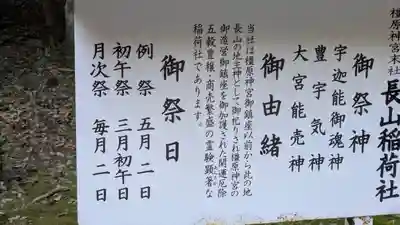 橿原神宮末社
長山稲荷社
御祭神
宇迦能御魂神
豊宇気神
大宮能売神
御由緒
当社は橿原神宮御鎮座以前から此の地
長山の地主神として御祀りされ橿原神宮の
御造営御鎮座を御加護された開運厄除
五穀豊穣・商売繁盛の霊験顕著な
稲荷社であります。
御祭日
例祭 五月二日
初午祭 三月初午日
月次祭 毎月二日